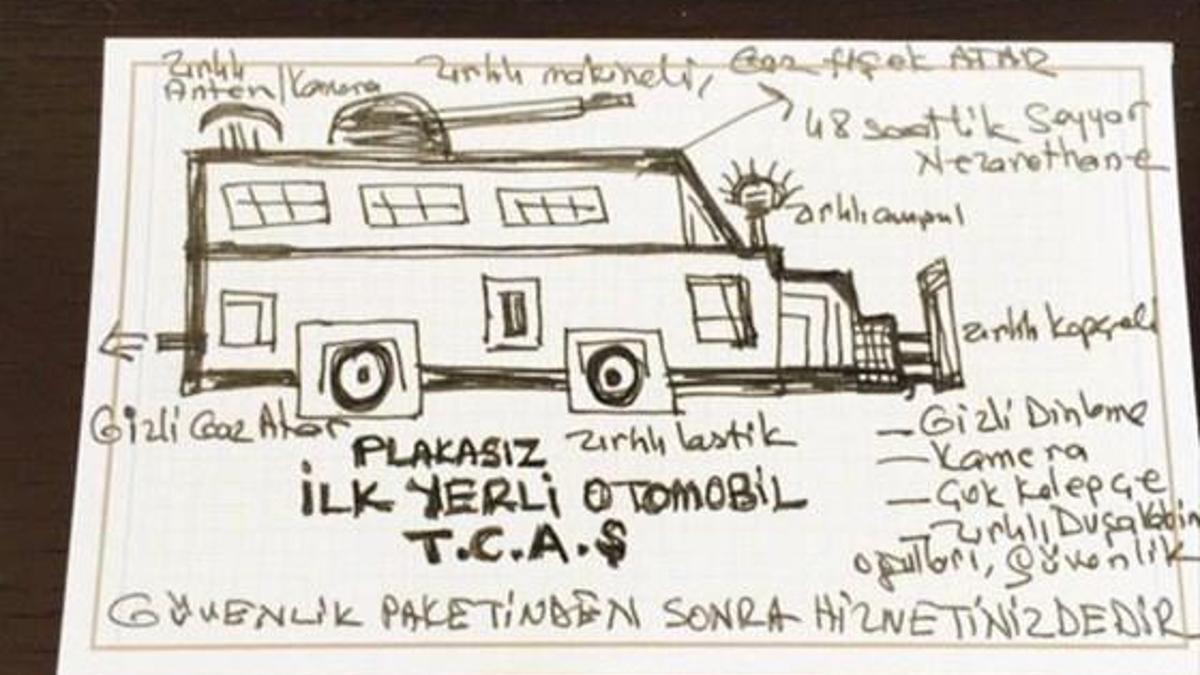 Zırhlı
Anten/Kamera
Zırhlı makineli, Gaz fişek ATAR
48 saatlik Seyyar
Nezarethane
zırhlı ampul
zırhlı kepçeli
Gizli Gaz Atar
zırhlı lastik
PLAKASIZ
İLK YERLİ OTOMOBİL
T.C.A.Ş
— Gizli Dinleme
— Kamera
— Çok Kelepçe
— Zırhlı, Duşakabin
oğulları, Güvenlik
GÜVENLİK PAKETİNDEN SONRA HİZNETİNİZDEDİR